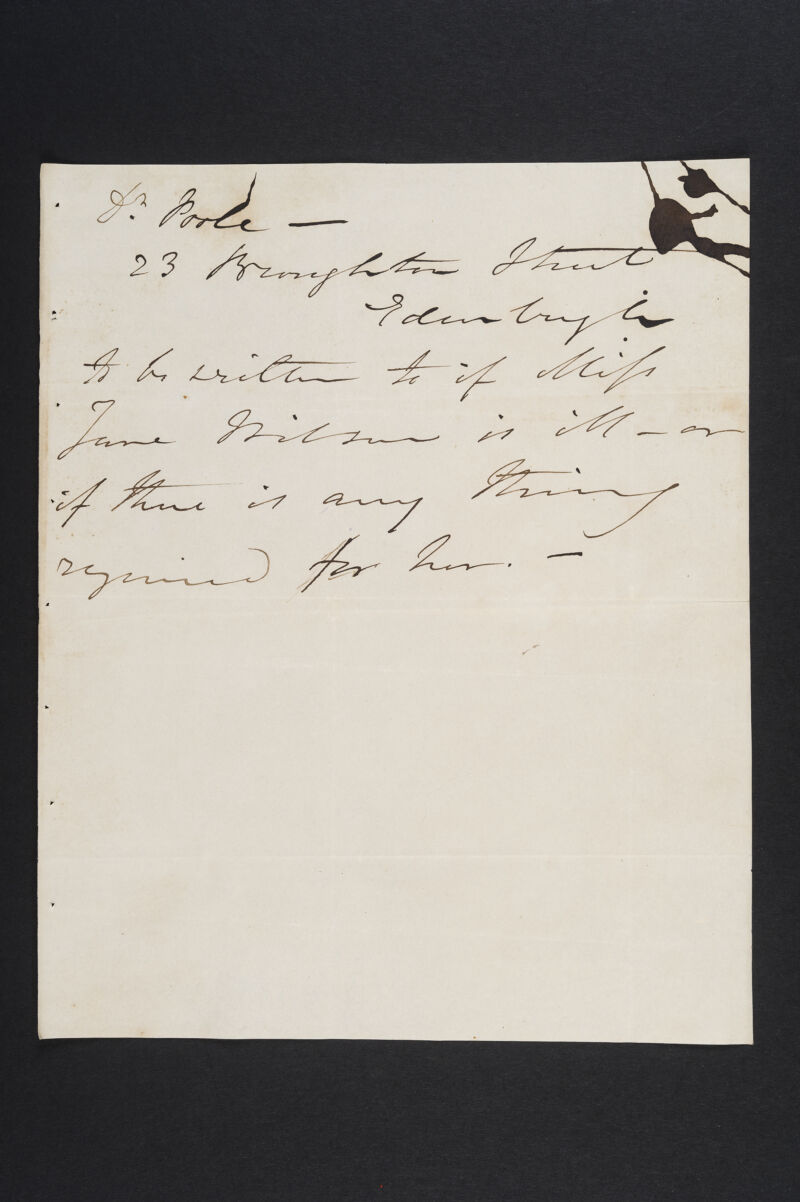 Dr. Poole —
23 Broughton Street
Edinburgh
to be written to if Miss
Jane Wilson is ill — or
if there is any thing
required for her. —